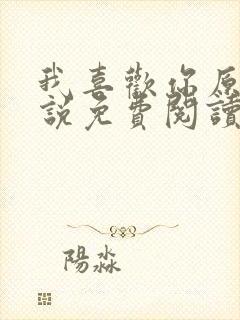 我喜歡你原
說免費閱讀
陽淼